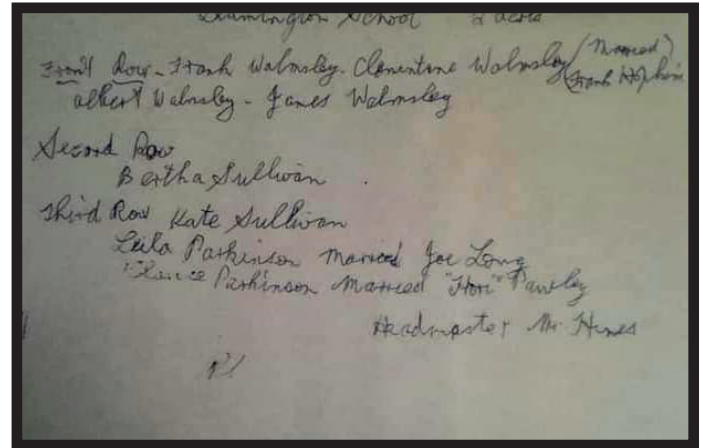 School
Front Row - Frank Walmsley - Clementine Walmsley (Married)
(Frank Hopkins
Albert Walmsley - James Walmsley
Second Row
Bertha Sullivan .
Third Row Kate Sullivan
Leila Parkinson Married Joe Long
Parkinson Married "Hori" Pawley
Headmaster Mr Hines